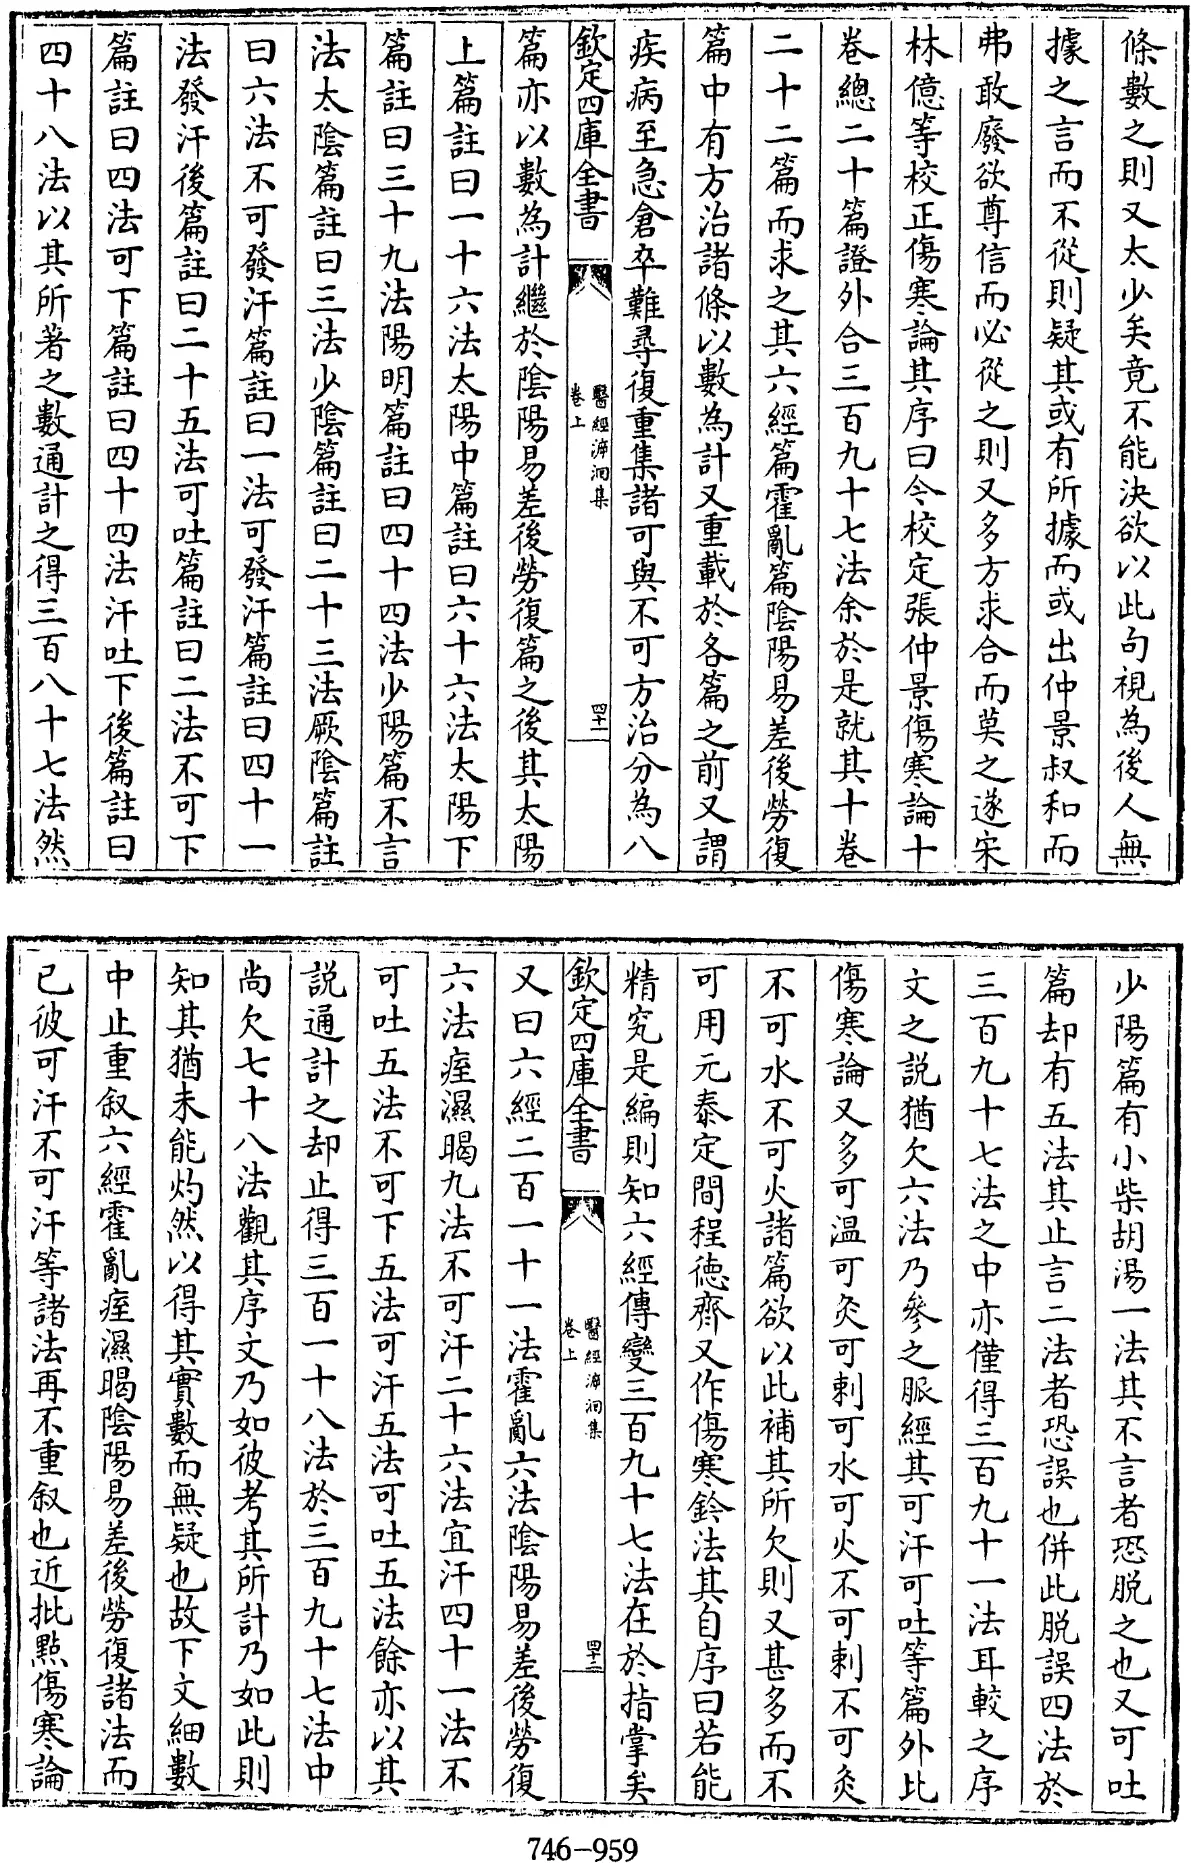 條數之則又太少矣竟不能決欲以此句視為後人無
據之言而不從則疑其或有所據而或出仲景叔和而
弗敢廢欲尊信而必從之則又多方求合而莫之遂宋
林億等校正傷寒論其序曰今校定張仲景傷寒論十
卷總二十篇證外合三百九十七法余於是就其十卷
二十二篇而求之其六經篇霍亂篇陰陽易差後勞復
篇中有方治諸條以數為計又重載於各篇之前又謂
疾病至急倉卒難尋復重集諸可與不可方治分為八
欽定四庫全書
醫經溯洄集
卷上
四十二
篇亦以數為計繼於陰陽易差後勞復篇之後其太陽
上篇註曰一十六法太陽中篇註曰六十六法太陽下
篇註曰三十九法陽明篇註曰四十四法少陽篇不言
法太陰篇註曰三法少陰篇註曰二十三法厥陰篇註
曰六法不可發汗篇註曰一法可發汗篇註曰四十一
法發汗後篇註曰二十五法可吐篇註曰二法不可下
篇註曰四法可下篇註曰四十四法汗吐下後篇註曰
四十八法以其所著之數通計之得三百八十七法然
少陽篇有小柴胡湯一法其不言者恐脫之也又可吐
篇却有五法其止言二法者恐誤也併此脫誤四法於
三百九十七法之中亦僅得三百九十一法耳較之序
文之說猶欠六法乃參之脈經其可汗可吐等篇外比
傷寒論又多可溫可灸可刺可水可火不可刺不可灸
不可水不可火諸篇欲以此補其所欠則又甚多而不
可用元泰定間程德齊又作傷寒鈐法其自序曰若能
精究是編則知六經傳變三百九十七法在於指掌矣
欽定四庫全書
醫經溯洄集
卷上
四十三
又曰六經二百一十一法霍亂六法陰陽易差後勞復
六法痓濕暍九法不可汗二十六法宜汗四十一法不
可吐五法不可下五法可汗五法可吐五法餘亦以其
說通計之却止得三百一十八法於三百九十七法中
尚欠七十八法觀其序文乃如彼考其所計乃如此則
知其猶未能灼然以得其實數而無疑也故下文細數
中止重叙六經霍亂痓濕暍陰陽易差後勞復諸法而
已彼可汗不可汗等諸法再不重叙也近批點傷寒論
746-959